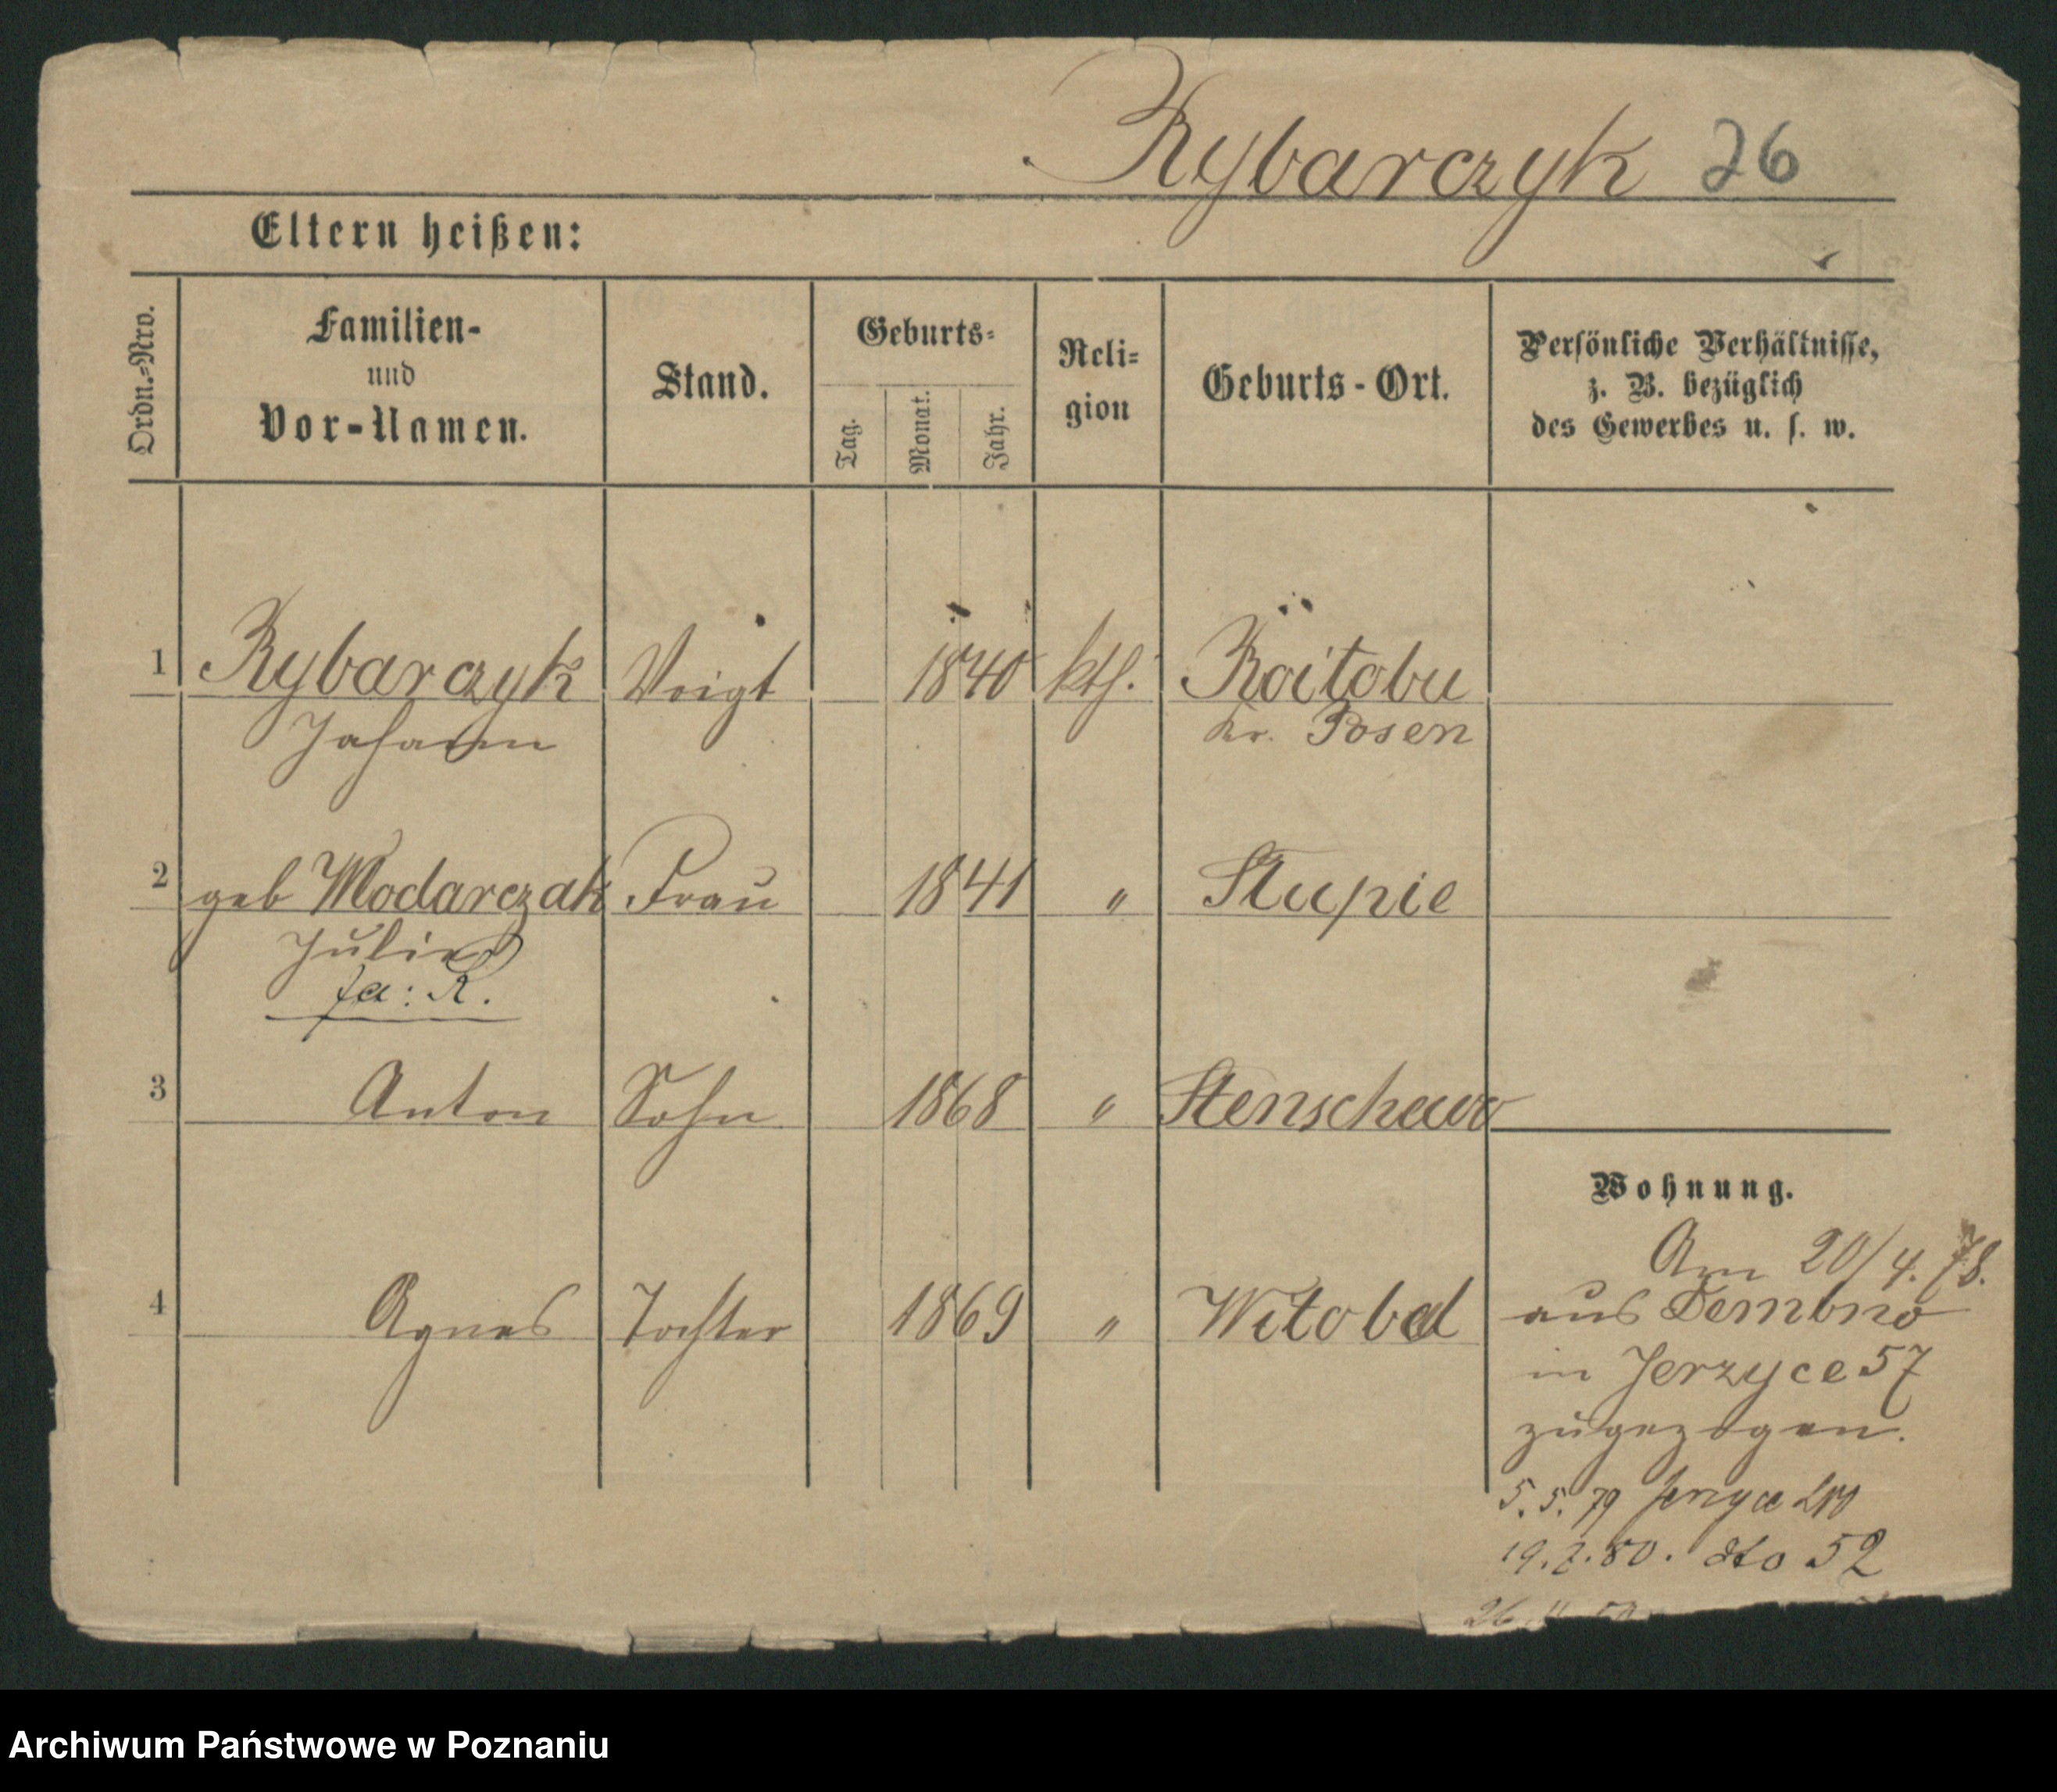 Rybarczyk 26
Eltern heißen:
Ordn.-Nro.
Familien-
und
Vor-Namen.
Stand.
Geburts-
Tag.
Monat.
Jahr.
Reli-
gion
Geburts-Ort.
Persönliche Verhältnisse,
z. B. bezüglich
des Gewerbes u. s. w.
1 Rybarczyk Voigt 1840 kth. Roitobu
Johann Kr. Posen
2 geb Modarczak Frau 1841 " Stupie
Julie
fa: R.
3 Anton Sohn 1868 " Stenschewo
Wohnung.
4 Agnes Tochter 1869 " Witobel
Am 20/4. 78.
aus Dembno
in Jerzyce 57
zugezogen.
5. 5. 79 Jerzyce
19. 2. 80. dto 52
Archiwum Państwowe w Poznaniu